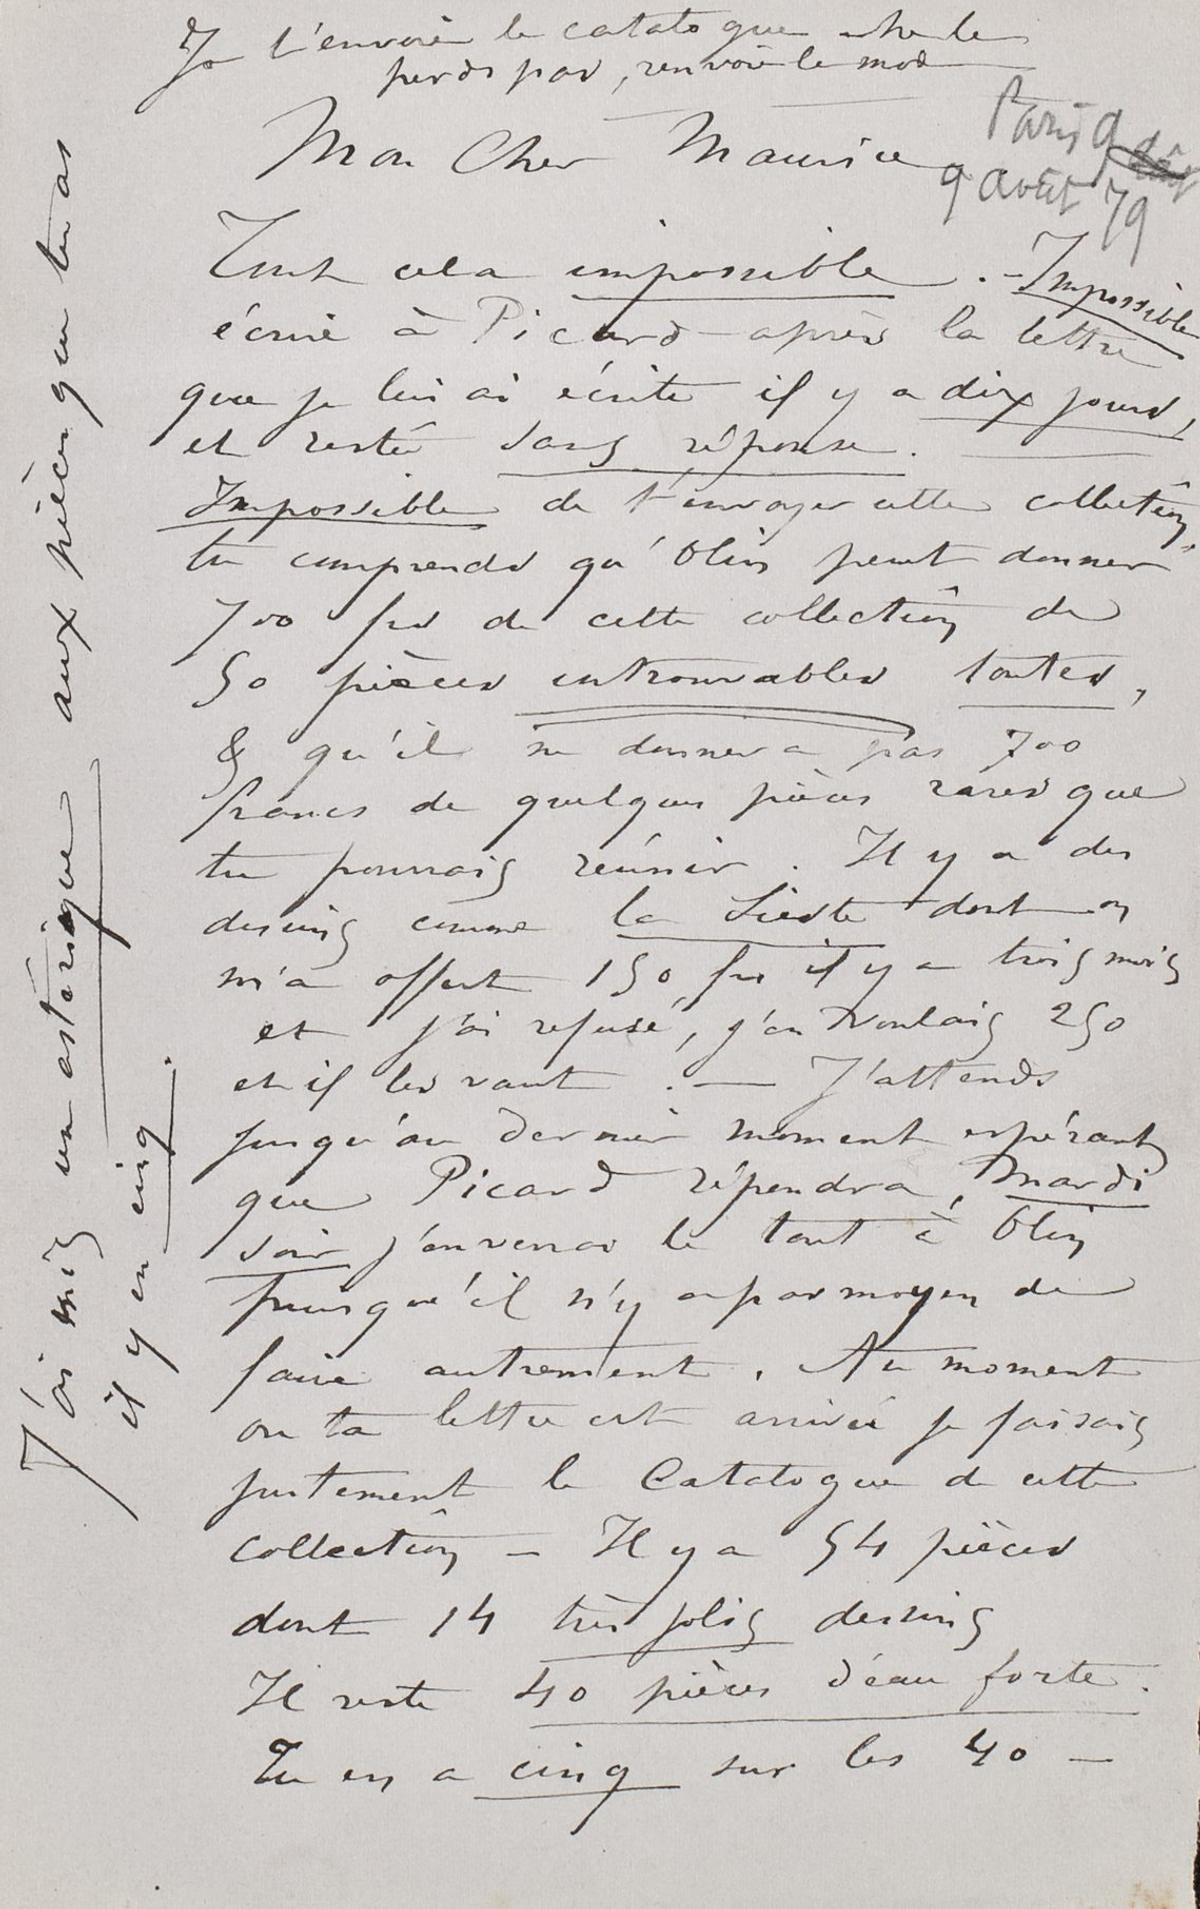 Je t'envoie le catalogue ne le
perds pas, renvoie le moi
Mon Cher Maurice
Paris 9
9 août 79
Tout cela impossible. - Impossible
écrire à Picard - après la lettre
que je lui ai écrite il y a dix jours,
et restée sans réponse.
Impossible de t'envoyer cette collection,
tu comprends qu'Olin peut donner
700 frs de cette collection de
50 pièces introuvables toutes,
& qu'il ne donnera pas 700
francs de quelques pièces rares que
tu pourrais réunir. Il y a des
dessins comme la Sieste dont on
m'a offert 150 frs il y a trois mois
et j'ai refusé, j'en voulais 250
et il les vaut. — J'attends
jusqu'au dernier moment espérant
que Picard répondra, mardi
soir j'enverrai le tout à Olin
puisqu'il n'y a pas moyen de
faire autrement. Au moment
ou ta lettre est arrivée je faisais
justement le Catalogue de cette
collection — Il y a 54 pièces
dont 14 très jolis dessins
Il reste 40 pièces d'eau forte.
Tu en a cinq sur les 40 —
J'ai mis un astérisque aux pièces que tu as
il y en cinq.